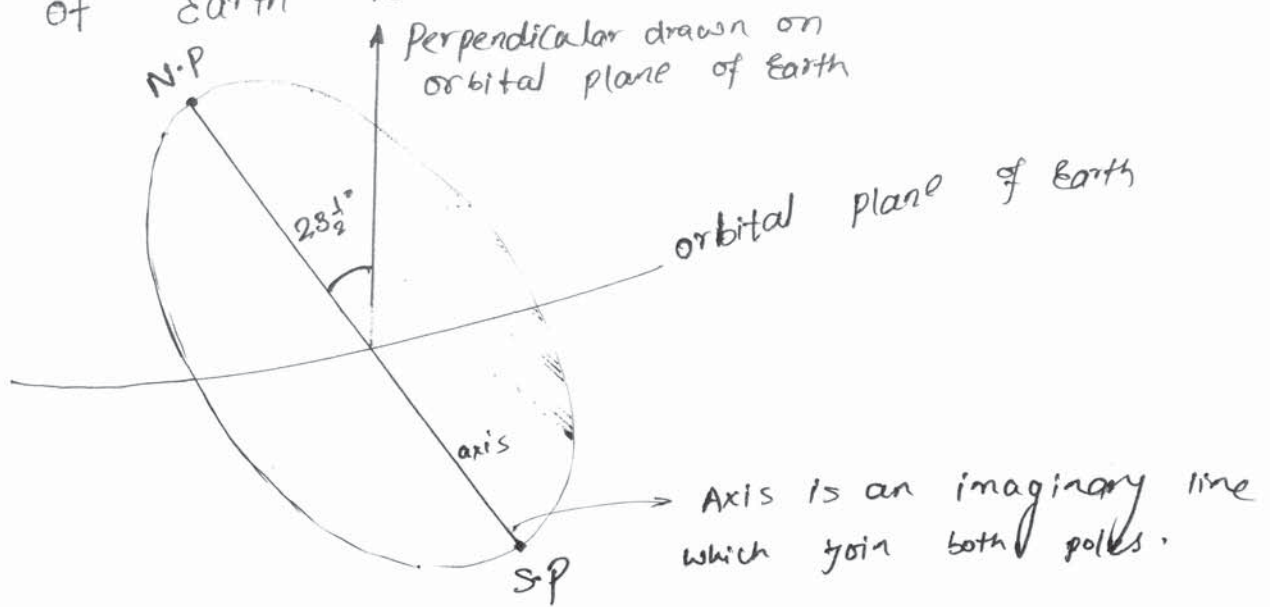 of Earth
Perpendicular drawn on
orbital plane of Earth
N.P
23½°
orbital plane of Earth
axis
Axis is an imaginary line
which join both poles.
S.P